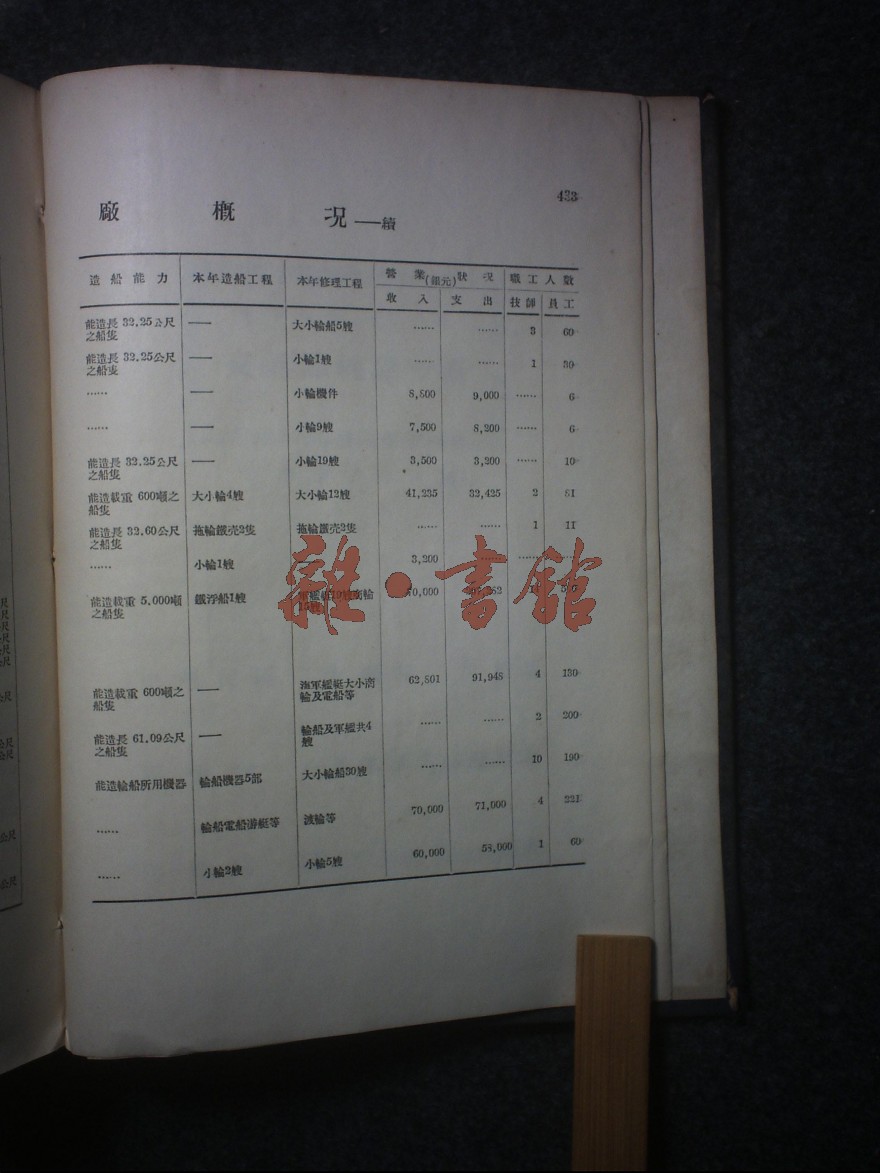 433
廠 概 況 ——續
造船能力 本年造船工程 本年修理工程 營業(銀元)狀況 職工人數
收入 支出 技師 員工
能造長 32.25公尺之船隻 —— 大小輪船5艘 …… …… 3 60
能造長 32.25公尺之船隻 —— 小輪1艘 …… …… 1 30
…… —— 小輪機件 8,800 9,000 …… 6
…… —— 小輪9艘 7,500 8,200 …… 6
能造長 32.25公尺之船隻 —— 小輪19艘 3,500 3,200 …… 10
能造載重 600噸之船隻 大小輪4艘 大小輪12艘 41,235 32,425 2 81
能造長 32.60公尺之船隻 拖輪鐵壳2隻 拖輪鐵壳2隻 …… …… 1 11
…… 小輪1艘 3,200
能造載重 5,000噸之船隻 鐵浮船1艘
雜·書館
能造載重 600噸之船隻 —— 海軍艦艇大小商輪及電船等 62,801 91,948 4 130
能造長 61.09公尺之船隻 —— 輪船及軍艦共4艘 …… …… 2 200
能造輪船所用機器 輪船機器5部 大小輪船30艘 …… …… 10 190
…… 輪船電船游艇等 渡輪等 70,000 71,000 4 221
…… 小輪2艘 小輪5艘 60,000 58,000 1 60